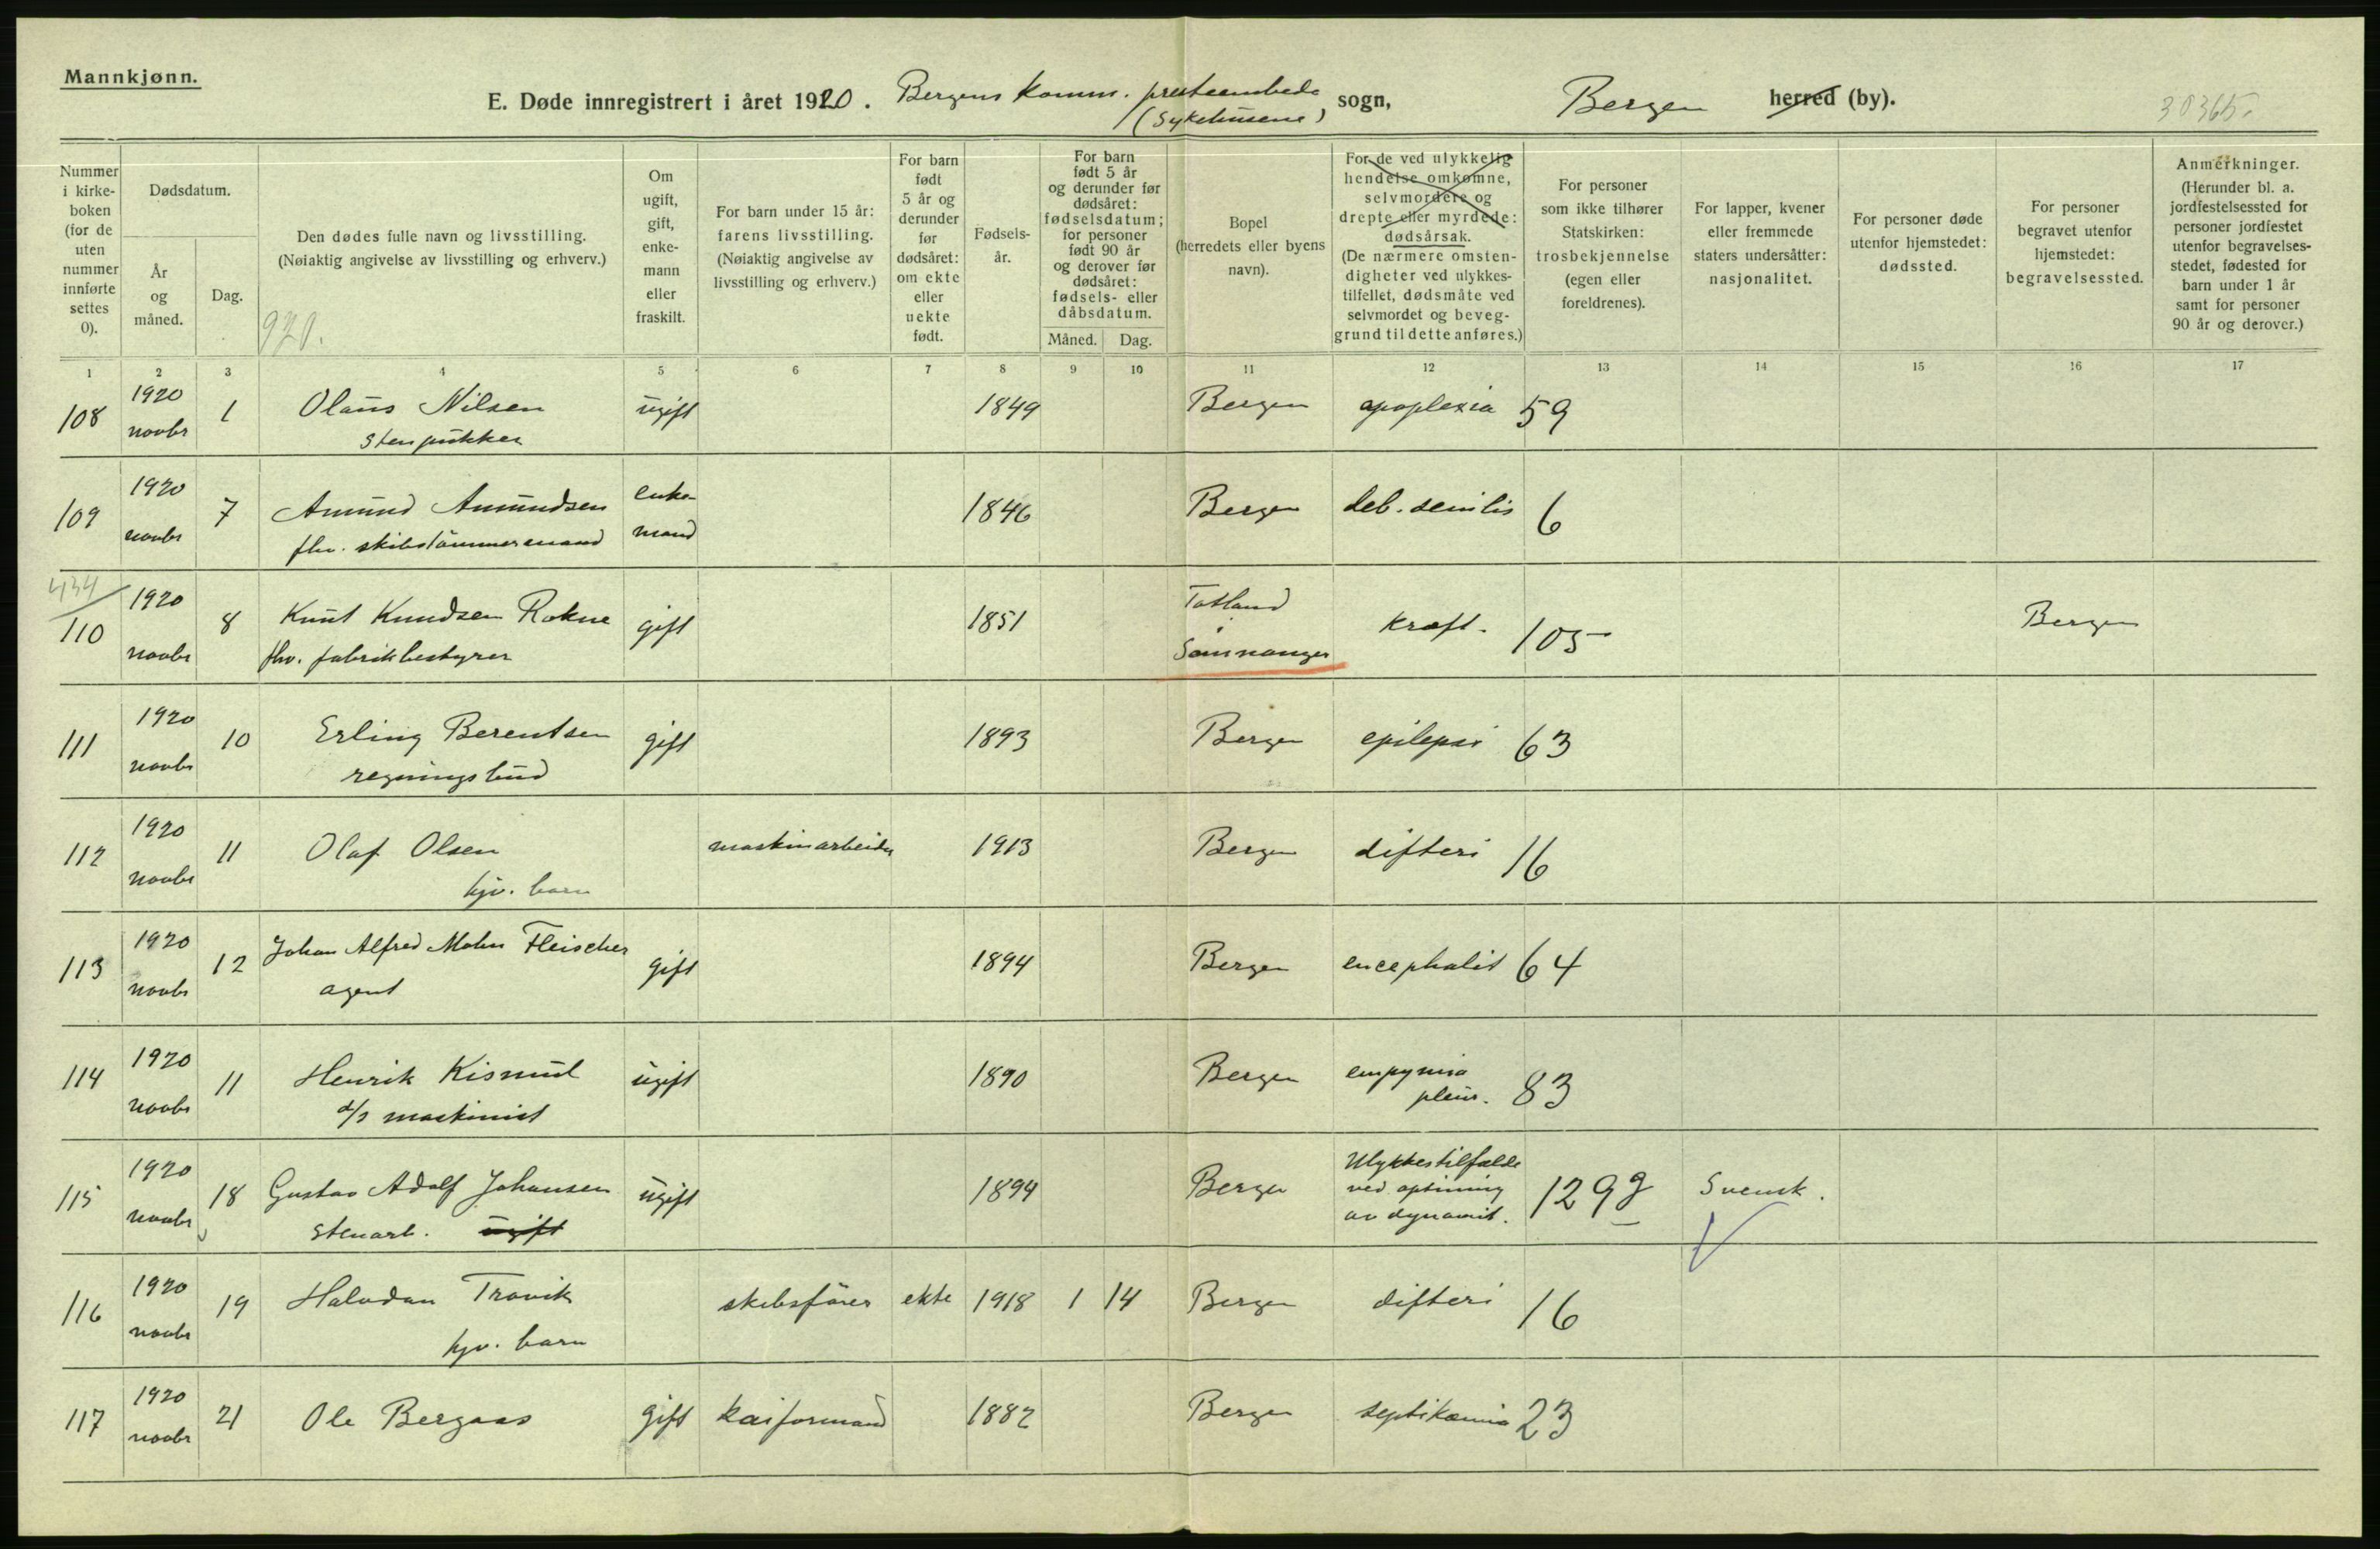 Mannkjønn.
E. Døde innregistrert i året 1920. Bergens komm. presteembede (Sykehusene) sogn, Bergen herred (by). 30365.
Nummer i kirkeboken (for de uten nummer innførte settes 0).
Dødsdatum.
År og måned.
Dag.
Den dødes fulle navn og livsstilling.
(Nøiaktig angivelse av livsstilling og erhverv.)
920.
Om ugift, gift, enkemann eller fraskilt.
For barn under 15 år: farens livsstilling. (Nøiaktig angivelse av livsstilling og erhverv.)
For barn født 5 år og derunder før dødsåret: om ekte eller uekte født.
Fødselsår.
For barn født 5 år og derunder før dødsåret: fødselsdatum; for personer født 90 år og derover før dødsåret: fødsels- eller dåbsdatum.
Måned. Dag.
Bopel (herredets eller byens navn).
For de ved ulykkelig hendelse omkomne, selvmordere og drepte eller myrdede: dødsårsak. (De nærmere omstendigheter ved ulykkestilfellet, dødsmåte ved selvmordet og beveggrund til dette anføres.)
For personer som ikke tilhører Statskirken: trosbekjennelse (egen eller foreldrenes).
For lapper, kvener eller fremmede staters undersåtter: nasjonalitet.
For personer døde utenfor hjemstedet: dødssted.
For personer begravet utenfor hjemstedet: begravelsessted.
Anmerkninger. (Herunder bl. a. jordfestelsessted for personer jordfestet utenfor begravelsesstedet, fødested for barn under 1 år samt for personer 90 år og derover.)
1 2 3 4 5 6 7 8 9 10 11 12 13 14 15 16 17
108 1920 novbr 1 Olaus Nilsen ugift 1849 Bergen apoplexia 59
stenpukker
109 1920 novbr 7 Amund Amundsen enkemand 1846 Bergen deb. senilis 6
fhv. skibstømmermand
434
110 1920 novbr 8 Knut Knudsen Rokne gift 1851 Tøsland Samnanger kræft. 105 Bergen
fhv. fabrikbestyrer
111 1920 novbr 10 Erling Berentsen gift 1893 Bergen epilepsi 63
regningsbud
112 1920 novbr 11 Olaf Olsen maskinarbeider 1913 Bergen difteri 16
hjv. barn
113 1920 novbr 12 Johan Alfred Mohn Fleischer gift 1894 Bergen encephalit 64
agent
114 1920 novbr 11 Henrik Kismul ugift 1890 Bergen empyema pleur. 83
d/s maskinist
115 1920 novbr 18 Gustav Adolf Johansen ugift 1894 Bergen Ulykkestilfælde ved optining av dynamit. 129g Svensk.
stenarb. ugift
116 1920 novbr 19 Halvdan Trovik skibsfører ekte 1918 1 14 Bergen difteri 16
hjv. barn
117 1920 novbr 21 Ole Bergaas gift kaiformand 1882 Bergen septikæmia 23